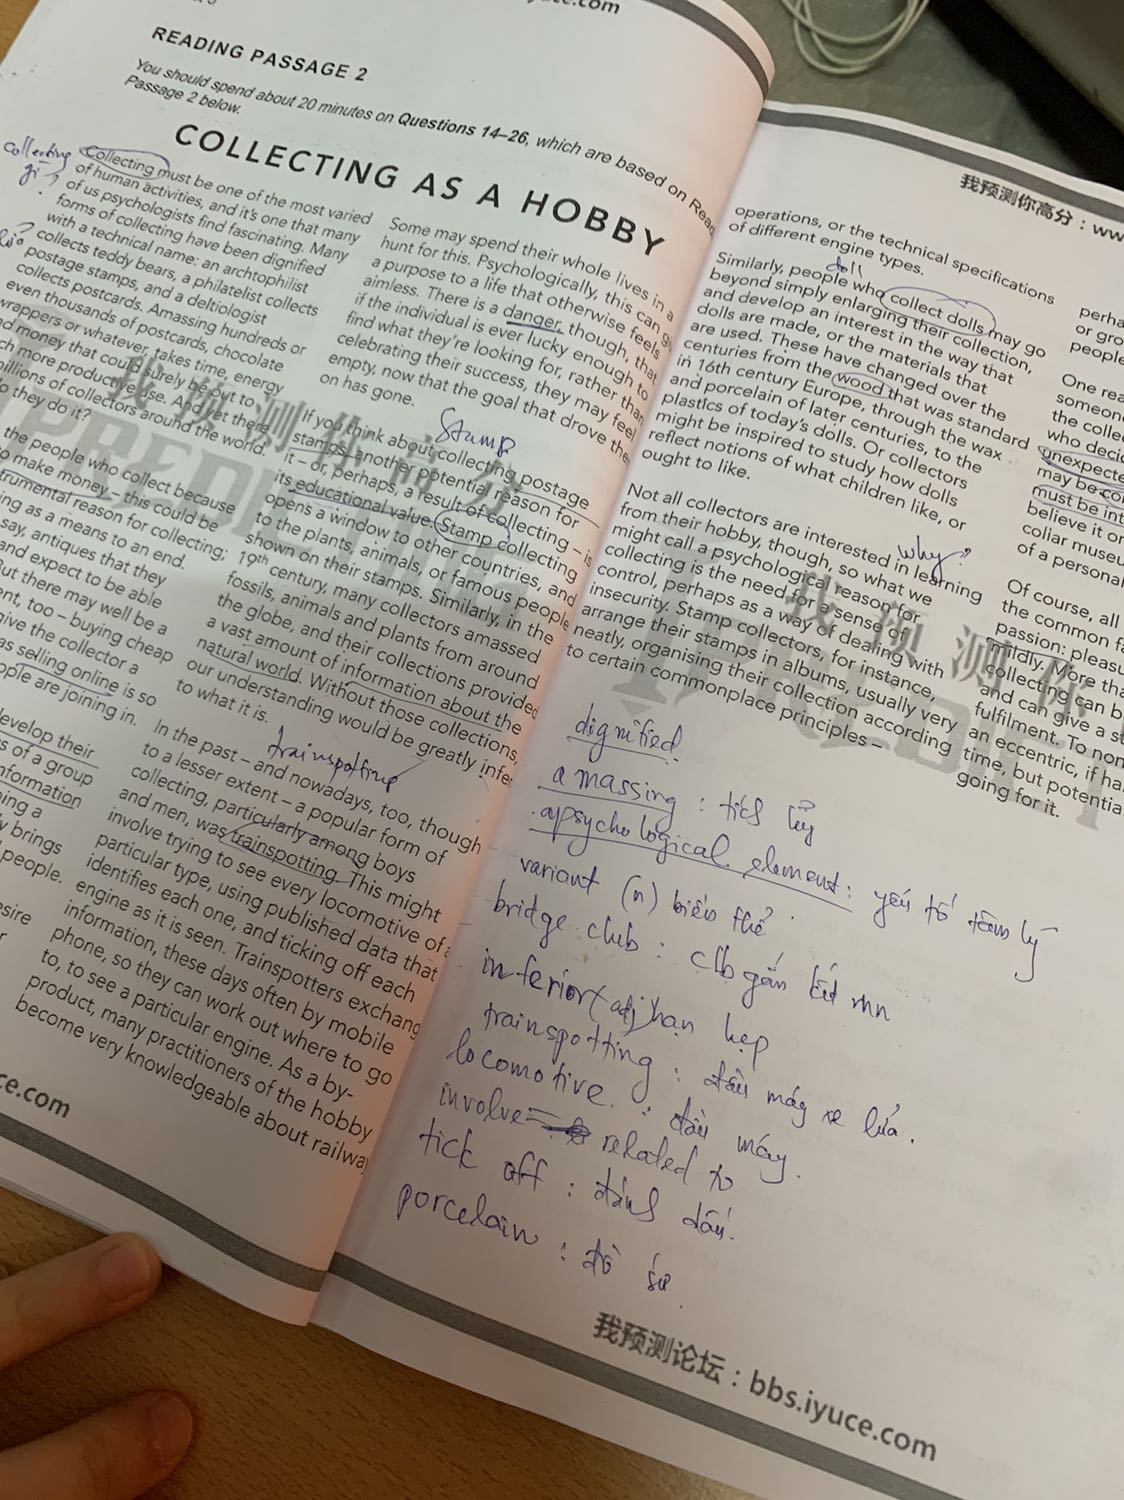 iyuce.com
READING PASSAGE 2
You should spend about 20 minutes on Questions 14–26, which are based on
Passage 2 below.
COLLECTING AS A HOBBY
collecting
gì?
Collecting must be one of the most varied
of human activities, and it's one that many
of us psychologists find fascinating. Many
forms of collecting have been dignified
with a technical name: an archtophilist
collects teddy bears, a philatelist collects
postage stamps, and a deltiologist
collects postcards. Amassing hundreds or
even thousands of postcards, chocolate
wrappers or whatever, takes time, energy
money that could surely be put to
more productive use. And yet there
millions of collectors around the world.
they do it?
the people who collect because
to make money – this could be
reason for collecting;
as a means to an end.
say, antiques that they
and expect to be able
But there may well be a
too – buying cheap
give the collector a
as selling online is so
people are joining in.
develop their
of a group
information
a
brings
people.
Some may spend their whole lives in a
hunt for this. Psychologically, this can give
a purpose to a life that otherwise feels
aimless. There is a danger, though, that
if the individual is ever lucky enough to
find what they're looking for, rather than
celebrating their success, they may feel
empty, now that the goal that drove the
on has gone.
Stamp
If you think about collecting postage
stamps, another potential reason for
it – or, perhaps, a result of collecting – is
its educational value. Stamp collecting
opens a window to other countries, and
to the plants, animals, or famous people
shown on their stamps. Similarly, in the
19th century, many collectors amassed
fossils, animals and plants from around
the globe, and their collections provided
a vast amount of information about the
natural world. Without those collections,
our understanding would be greatly
to what it is.
trainspotting
In the past – and nowadays, too, though
to a lesser extent – a popular form of
collecting, particularly among boys
and men, was trainspotting. This might
involve trying to see every locomotive of a
particular type, using published data that
identifies each one, and ticking off each
engine as it is seen. Trainspotters
information, these days often by mobile
phone, so they can work out where to go
to, to see a particular engine. As a by-
product, many practitioners of the hobby
become very knowledgeable about
.com
我预测你高分
IPREDICTING
我预测你高分：
operations, or the technical specifications
of different engine types.
doll
Similarly, people who collect dolls may go
beyond simply enlarging their collection,
and develop an interest in the way that
dolls are made, or the materials that
are used. These have changed over the
centuries from the wood that was standard
in 16th century Europe, through the wax
and porcelain of later centuries, to the
plastics of today's dolls. Or collectors
might be inspired to study how dolls
reflect notions of what children like, or
ought to like.
why?
Not all collectors are interested in learning
from their hobby, though, so what we
might call a psychological reason for
collecting is the need for a sense of
control, perhaps as a way of dealing with
insecurity. Stamp collectors, for instance,
arrange their stamps in albums, usually very
neatly, organising their collection according
to certain commonplace principles –
or
people
One
someone
the
who
may be
must be
believe it or
collar
of a personal
Of course, all
the common
passion:
mildly. More
collecting can
and can give a
fulfilment. To
an eccentric, if
time, but
going for it.
我预测你
dignified
a massing : tích lũy
a psychological element : yếu tố tâm lý
variant (n) biến thể.
bridge club : clb gắn kết mn
inferior (adj) hạn hẹp
trainspotting : đầu máy xe lửa.
locomotive : đầu máy.
involve = related to
tick off : đánh dấu.
porcelain : đồ sứ.
我预测论坛：bbs.iyuce.com